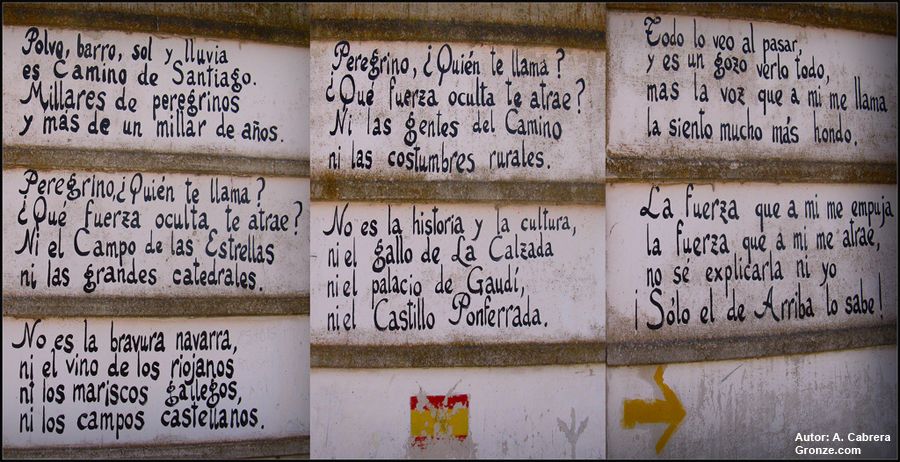 Polvo, barro, sol y lluvia
es Camino de Santiago.
Millares de peregrinos
y más de un millar de años.
Peregrino,¿Quién te llama?
¿Qué fuerza oculta te atrae?
Ni el Campo de las Estrellas
ni las grandes catedrales.
No es la bravura navarra,
ni el vino de los riojanos
ni los mariscos gallegos,
ni los campos castellanos.
Peregrino, ¿Quién te llama?
¿Qué fuerza oculta te atrae?
Ni las gentes del Camino
ni las costumbres rurales.
No es la historia y la cultura,
ni el gallo de La Calzada
ni el palacio de Gaudí,
ni el Castillo Ponferrada.
Todo lo veo al pasar,
y es un gozo verlo todo,
mas la voz que a mi me llama
la siento mucho más hondo.
La fuerza que a mi me empuja
la fuerza que a mi me atrae,
no sé explicarla ni yo
¡Sólo el de Arriba lo sabe!
Autor: A. Cabrera
Gronze.com